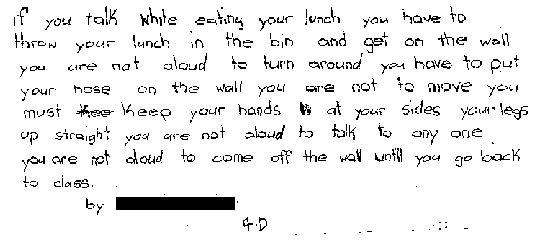 if you talk while eating your lunch you have to
throw your lunch in the bin and get on the wall
you are not aloud to turn around you have to put
your nose on the wall you are not to move you
must keep your hands at your sides your legs
up straight you are not aloud to talk to any one
you are not aloud to come off the wall until you go back
to class.
by
4.D